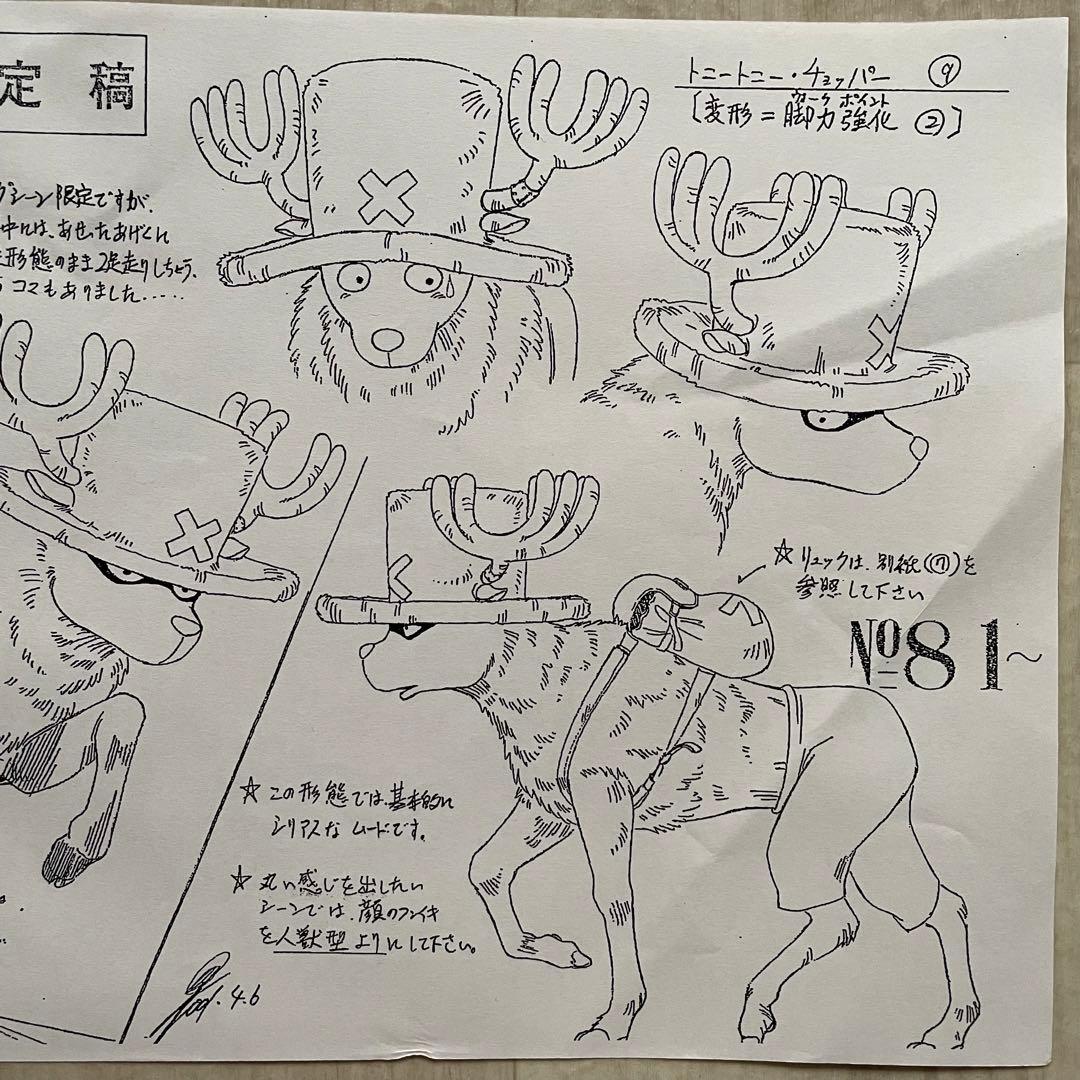 定稿
トニートニー・チョッパー ⑨
[変形=脚力強化 ②]
ウォークポイント
グシーン限定ですが、
中には、あせったあげくに
形態のまま2足走りしちゃう、
コマもありました‥‥‥
☆リュックは、別紙(⑦)を
参照して下さい
№81〜
☆この形態では、基本的に
シリアスなムードです。
☆丸い感じを出したい
シーンでは、顔のフンイキ
を人獣型よりにして下さい。
2001.4.6